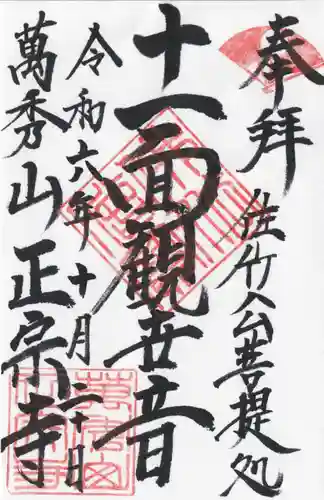 奉拝
佐竹公菩提処
十一面観世音
令和六年十月二十日
萬秀山正宗寺